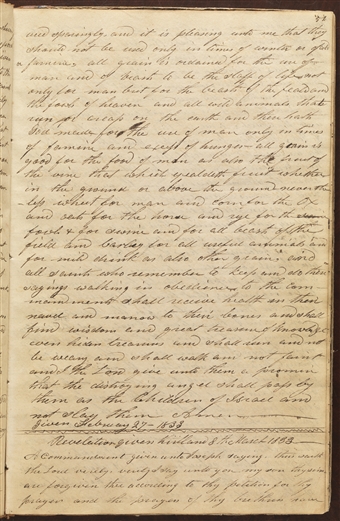 used sparingly, and it is pleasing unto me that they
should not be used only in times of winter or of cold
famine; all grain is ordained for the use of
man and of beast to be the staff of life not
only for man but for the beasts of the field and
the fowls of heaven and all wild animals that
run or creap on the earth and these hath
God made for the use of man only in times
of famine and excess of hunger all grain is
good for the food of man as also the fruit of
the vine that which yealdeth fruit whether
in the ground or above the ground neverthe
less wheat for man and corn for the Ox
and oats for the horse and rye for the
fowls & for swine and for all beast of the
field and barley for all useful animals and
for mild drink as also other grain. and
all saints who remember to keep and do these
sayings walking in obedience to the com
mandments shall receive health in their
navel and marrow to their bones and shall
find wisdom and great treasure of knowledge
even hiden treasures and shall run and not
be weary and shall walk and not faint
and I the Lord give unto them a promise
that the distroying angel shall pass by
them as the Children of Israel and
not slay them Amen
given February 27 - 1833
Revelation given Kirtland 8th March 1833
A Commandment given unto Joseph saying thus saith
the Lord verily verily I say unto you my son thy sins
are forgiven thee according to thy petition for thy
prayer and the prayers of thy brethren have